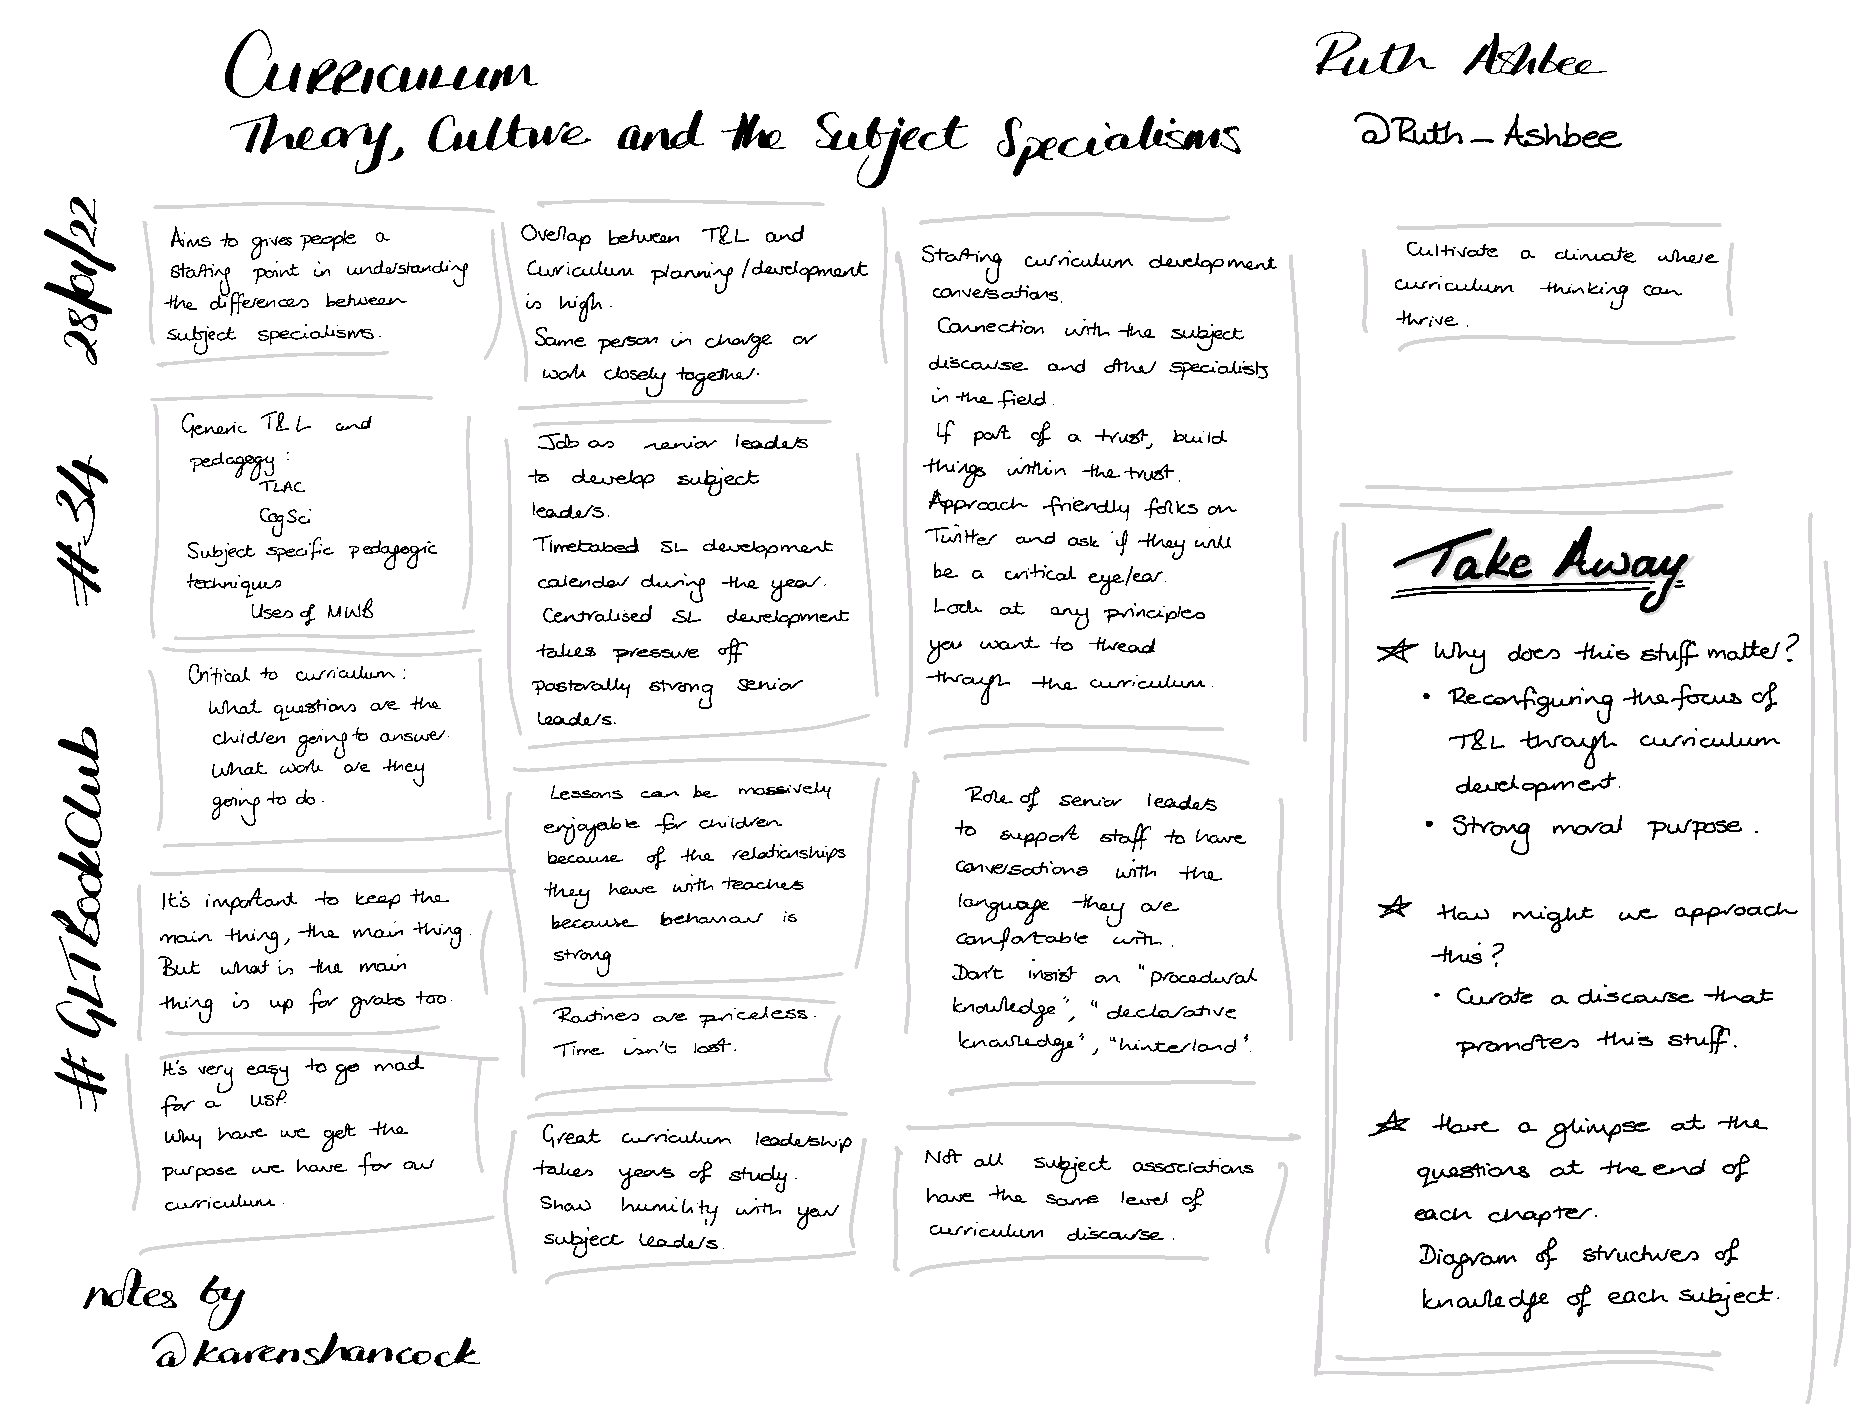 Curriculum
Theory, Culture and the Subject Specialisms
Ruth Ashbee
@Ruth_Ashbee
28/04/22
#34
#GLTBookClub
Aims to gives people a
starting point in understanding
the differences between
subject specialisms.
Generic T&L and
pedagogy:
TLAC
CogSci
Subject specific pedagogic
techniques
Uses of MWB
Critical to curriculum:
What questions are the
children going to answer.
What work are they
going to do.
It's important to keep the
main thing, the main thing.
But what is the main
thing is up for grabs too.
It's very easy to go mad
for a USP.
Why have we got the
purpose we have for our
curriculum.
Overlap between T&L and
Curriculum planning/development
is high.
Same person in charge or
work closely together.
Job as senior leaders
to develop subject
leaders.
Timetabed SL development
calender during the year.
Centralised SL development
takes pressure off
pastorally strong senior
leaders.
Lessons can be massively
enjoyable for children
because of the relationships
they have with teaches
because behaviour is
strong
Routines are priceless.
Time isn't lost.
Great curriculum leadership
takes years of study.
Show humility with your
subject leaders.
Starting curriculum development
conversations.
Connection with the subject
discourse and other specialists
in the field.
If part of a trust, build
things within the trust.
Approach friendly folks on
Twitter and ask if they will
be a critical eye/ear.
Look at any principles
you want to thread
through the curriculum.
Role of senior leaders
to support staff to have
conversations with the
language they are
comfortable with.
Don't insist on "procedural
knowledge", "declarative
knowledge", "hinterland".
Not all subject associations
have the same level of
curriculum discourse.
Cultivate a climate where
curriculum thinking can
thrive.
Take Away
☆ Why does this stuff matter?
• Reconfiguring the focus of
T&L through curriculum
development.
• Strong moral purpose.
☆ How might we approach
this?
• Curate a discourse that
promotes this stuff.
☆ Have a glimpse at the
questions at the end of
each chapter.
Diagram of structures of
knowledge of each subject.
notes by
@karenshancock